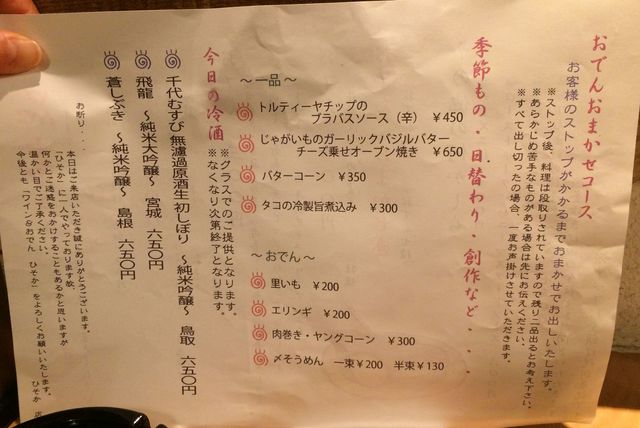 おでんおまかせコース
お客様のストップがかかるまでおまかせでお出しいたします。
※ストップ後、料理は段取りされていますので残り二品出るとお考え下さい。
※あらかじめ苦手なものがある場合は先にお伝えください。
※すべて出し切った場合、一度お声掛けさせていただきます。
季節もの・日替わり・創作など・・・
～一品～
トルティーヤチップの
ブラバスソース（辛） ￥450
じゃがいものガーリックバジルバター
チーズ乗せオーブン焼き ￥650
バターコーン ￥350
タコの冷製旨煮込み ￥300
～おでん～
里いも ￥200
エリンギ ￥200
肉巻き・ヤングコーン ￥300
〆そうめん 一束￥200 半束￥130
今日の冷酒
※グラスでのご提供となります。
※なくなり次第終了となります。
千代むすび 無濾過原酒生 初しぼり ～純米吟醸～ 鳥取 六五〇円
飛龍 ～純米大吟醸～ 宮城 六五〇円
蒼しぶき ～純米吟醸～ 島根 六五〇円
お断り・・・
本日はご来店いただき誠にありがとうございます。
「ひそか」に一人でやっております故、
何かとご迷惑をおかけすることもあるかと思いますが
温かい目でご了承ください。
今後とも「ワイン&おでん ひそか」をよろしくお願いいたします。
ひそか 店